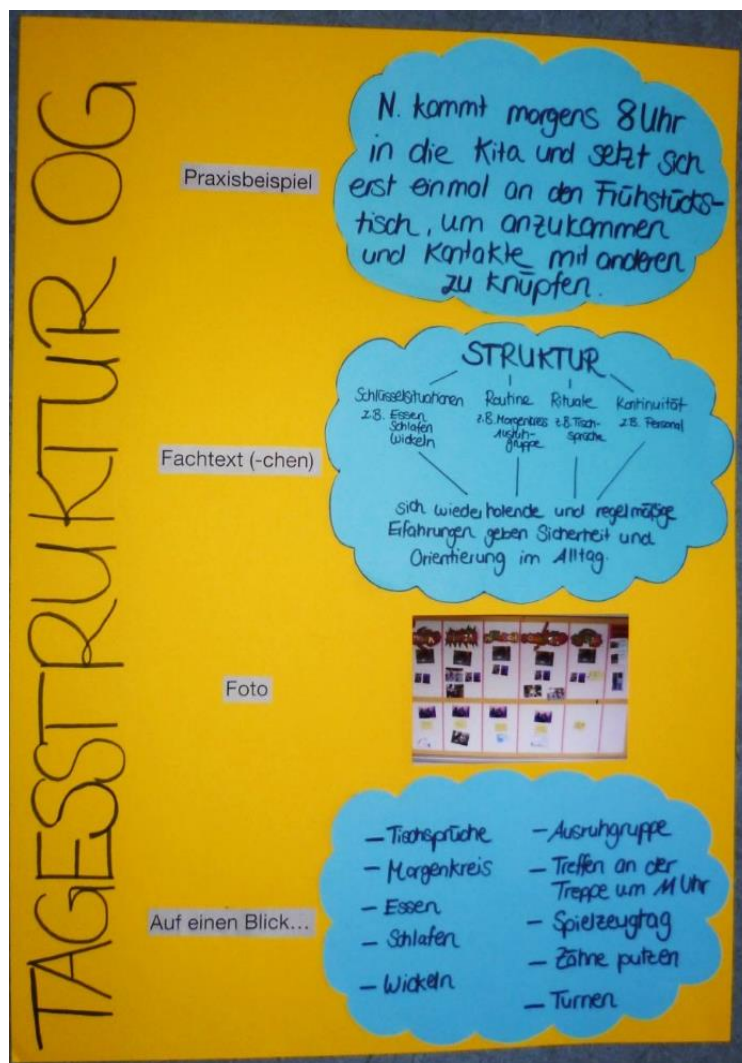 TAGESSTRUKTUR OG
Praxisbeispiel
N. kommt morgens 8 Uhr
in die Kita und setzt sich
erst einmal an den Frühstücks-
tisch, um anzukommen
und Kontakte mit anderen
zu knüpfen.
Fachtext (-chen)
STRUKTUR
Schlüsselsituationen Routine Rituale Kontinuität
z.B. Essen
Schlafen
Wickeln
z.B. Morgenkreis
Ausruh-
gruppe
z.B. Tisch-
sprüche
z.B. Personal
sich wiederholende und regelmäßige
Erfahrungen geben Sicherheit und
Orientierung im Alltag.
Foto
Auf einen Blick...
– Tischsprüche
– Morgenkreis
– Essen
– Schlafen
– Wickeln
– Ausruhgruppe
– Treffen an der
Treppe um 11 Uhr
– Spielzeugtag
– Zähne putzen
– Turnen